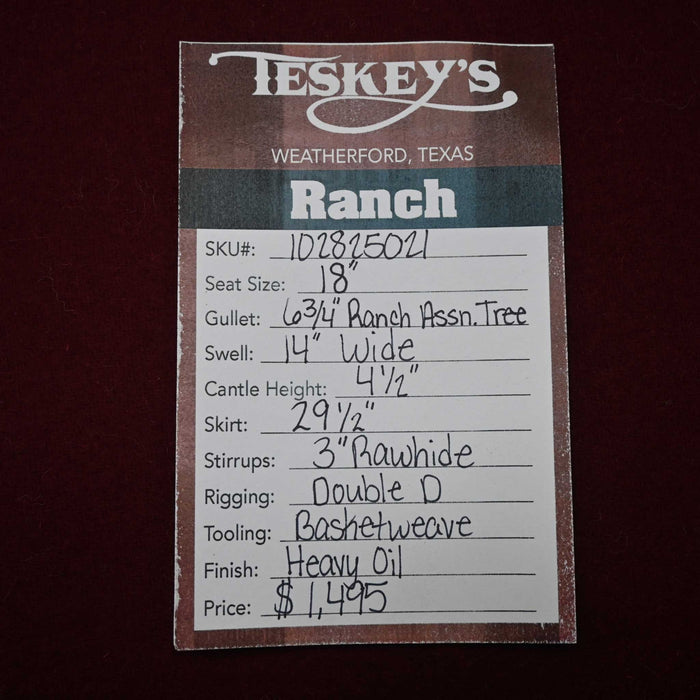 TESKEY'S
WEATHERFORD, TEXAS
Ranch
SKU#: 102825021
Seat Size: 18"
Gullet: 6 3/4" Ranch Assn. Tree
Swell: 14" Wide
Cantle Height: 4 1/2"
Skirt: 29 1/2"
Stirrups: 3" Rawhide
Rigging: Double D
Tooling: Basketweave
Finish: Heavy Oil
Price: $1,495